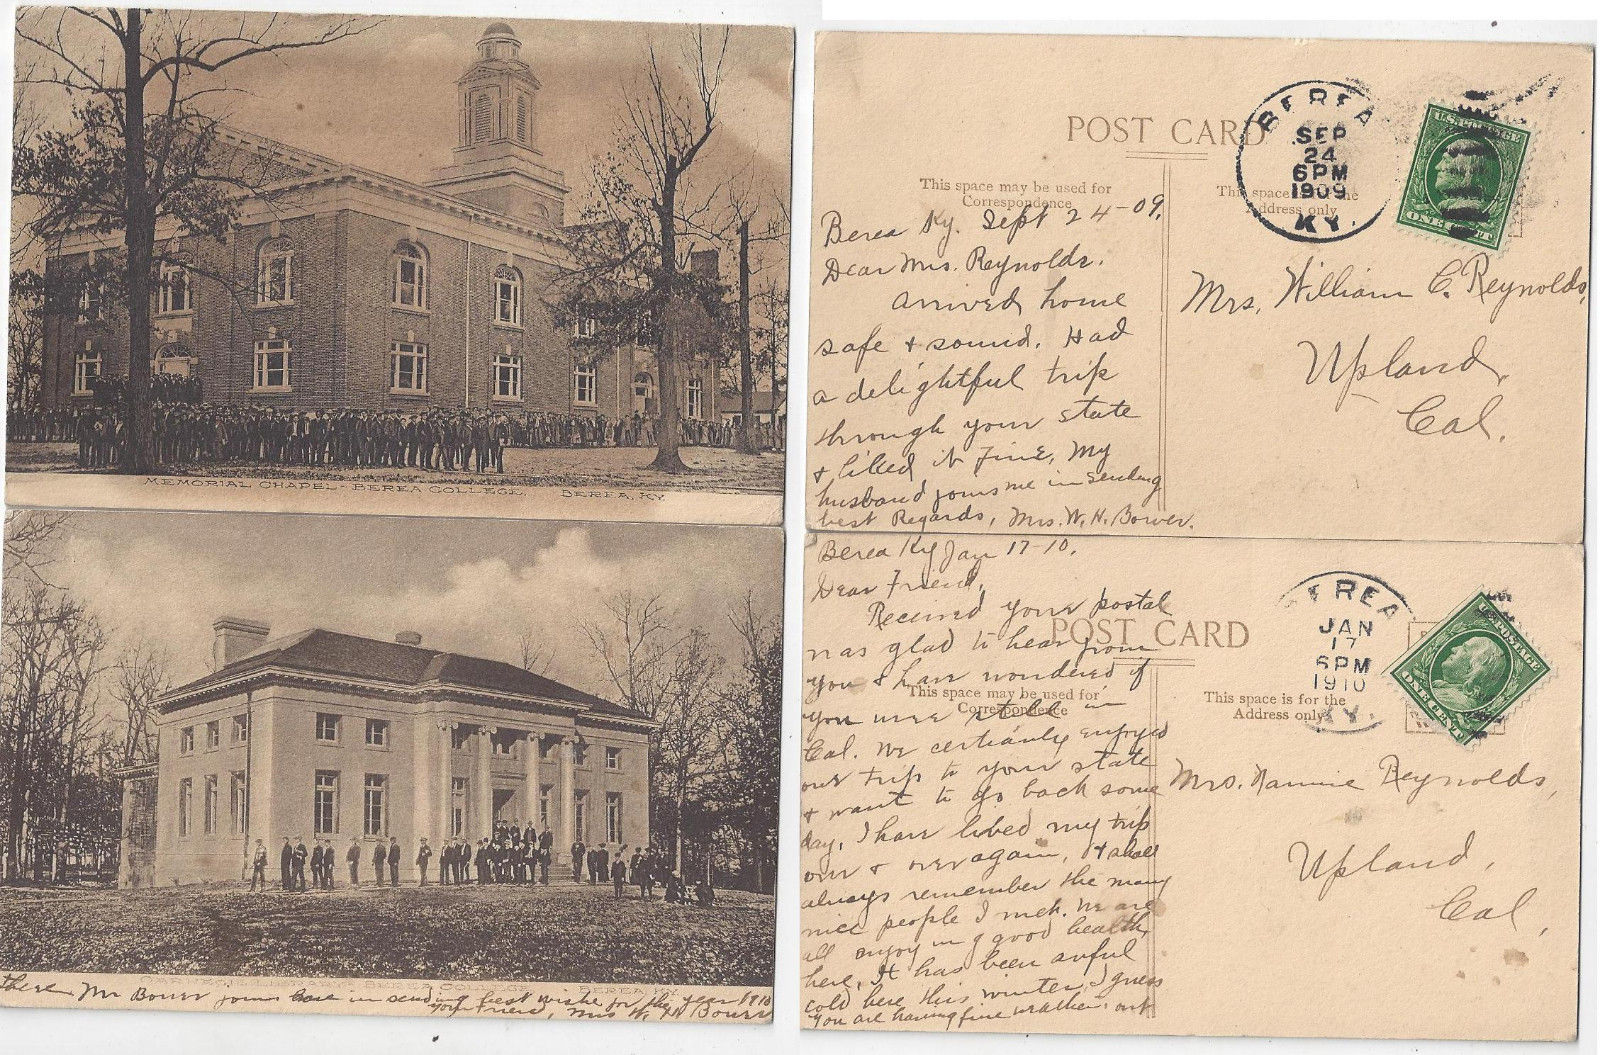 MEMORIAL CHAPEL - BEREA COLLEGE. BEREA, KY.
POST CARD
This space may be used for
Correspondence
This space is for the
Address only
BEREA
SEP
24
6PM
1909
KY.
U.S. POSTAGE
ONE CENT
Berea Ky. Sept 24-09.
Dear Mrs. Reynolds.
Arrived home
safe & sound. Had
a delightful trip
through your state
& liked it fine, My
husband joins me in sending
best Regards, Mrs. W. H. Bower.
Mrs. William C. Reynolds,
Upland,
Cal.
BEREA COLLEGE. BEREA, KY.
there Mr Bower joins me in sending best wishes for the year 1910
Your Friend, Mrs W. H. Bower
POST CARD
This space may be used for
Correspondence
This space is for the
Address only
BEREA
JAN
17
6PM
1910
KY.
U.S. POSTAGE
ONE CENT
Berea Ky Jan 17-10.
Dear Friend,
Received your postal
was glad to hear from
you & have wondered if
you were still in
Cal. We certianly enjoyed
our trip to your state
& want to go back some
day, I have lived my trip
over & over again, & shall
always remember the many
nice people I met. We are
all enjoying good health
here, It has been awful
cold here this winter, I guess
you are having fine weather out
Mrs. Nannie Reynolds,
Upland,
Cal,